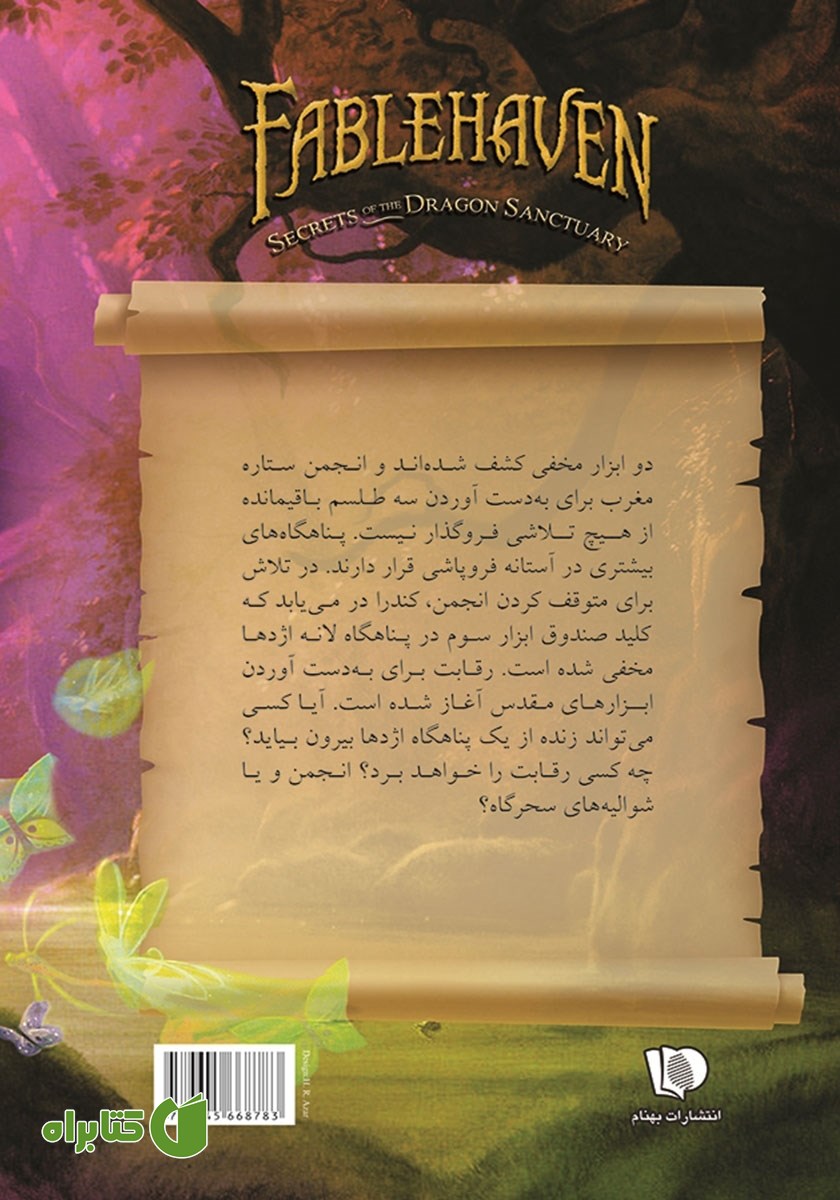 FABLEHAVEN
SECRETS OF THE DRAGON SANCTUARY
دو ابزار مخفی کشف شده‌اند و انجمن ستاره
مغرب برای به‌دست آوردن سه طلسم باقیمانده
از هیچ تلاشی فروگذار نیست. پناهگاه‌های
بیشتری در آستانه فروپاشی قرار دارند. در تلاش
برای متوقف کردن انجمن، کندرا در می‌یابد که
کلید صندوق ابزار سوم در پناهگاه لانه اژدها
مخفی شده است. رقابت برای به‌دست آوردن
ابزارهای مقدس آغاز شده است. آیا کسی
می‌تواند زنده از یک پناهگاه اژدها بیرون بیاید؟
چه کسی رقابت را خواهد برد؟ انجمن و یا
شوالیه‌های سحرگاه؟
Design:H. R. Azar
5 668783
کتابراه
انتشارات بهنام